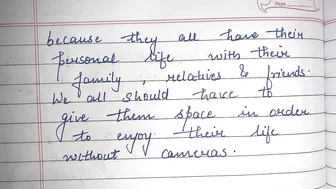 Page
because they all have their
personal life with their
family, relaties & friends.
We all should have to
give them space in order
to enjoy their life
without cameras.